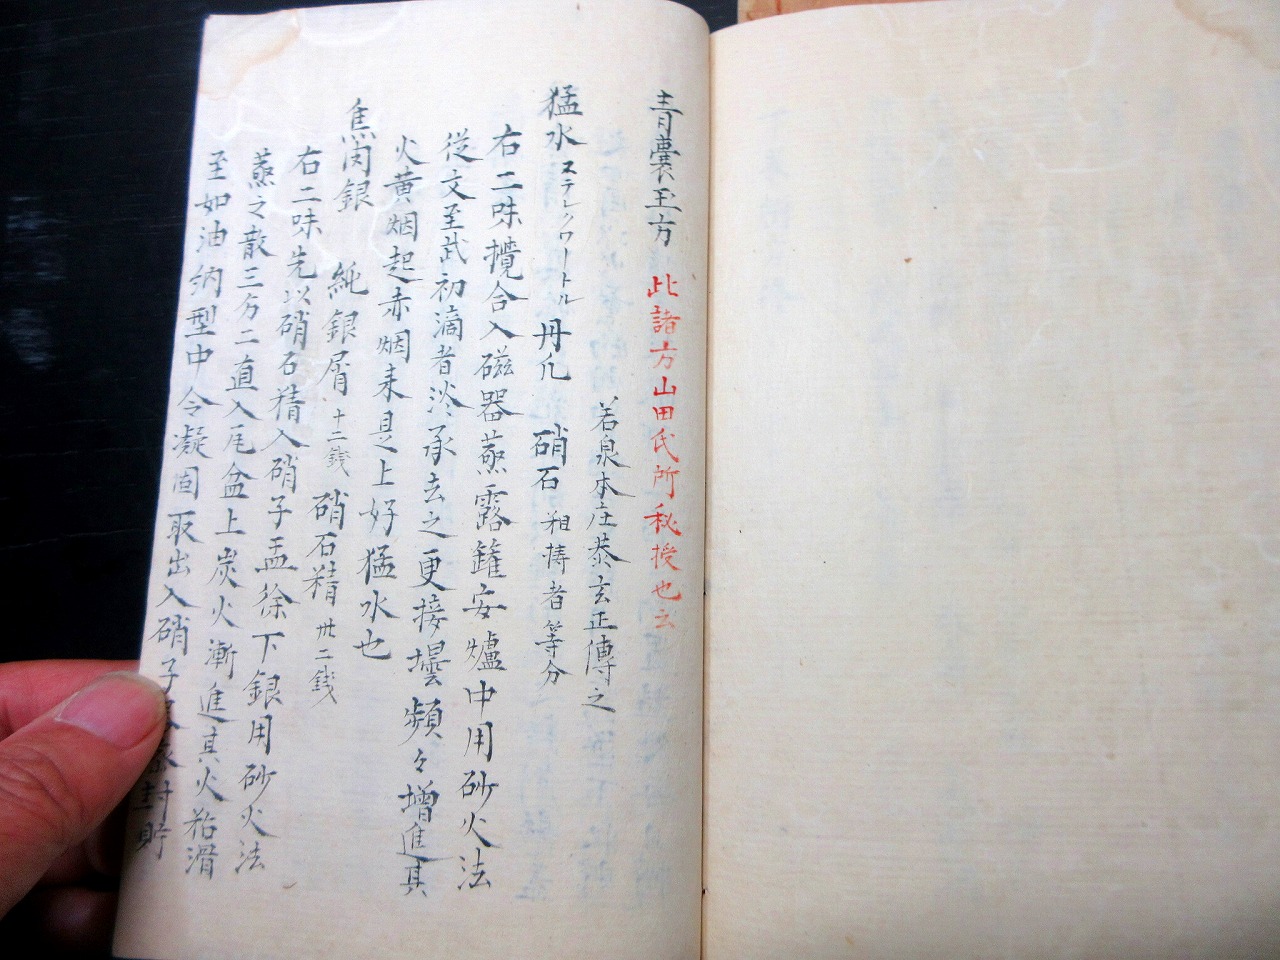 青囊玉方 此諸方山田氏所秘授也云
若泉本庄恭玄正傳之
猛水 ステレクワートル 丹凡 硝石 粗擣者等分
右二味攪合入磁器蒸露鑵安爐中用砂火法
從文至武初滴者淡承去之更接壜頻々増進其
火黄烟起赤烟来是上好猛水也
焦肉銀 純銀屑十二錢 硝石精卅二錢
右二味先以硝石精入硝子盂徐下銀用砂火法
蒸之散三分二直入尾盆上炭火漸進其火粘滑
至如油納型中令凝固取出入硝子 封貯